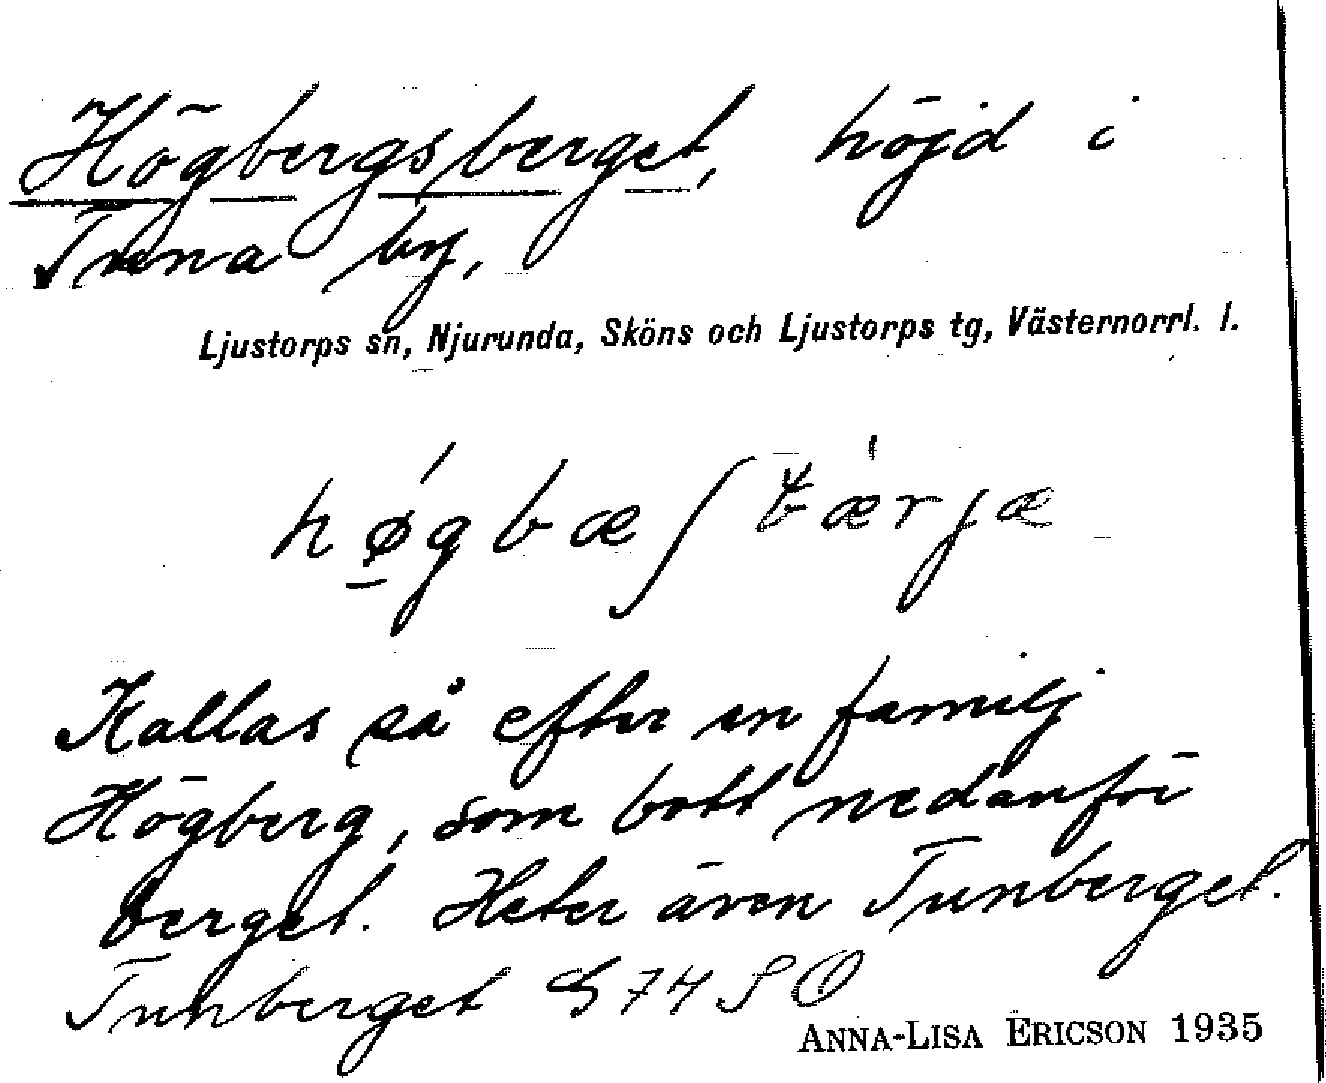 Högbergsberget, höjd i
Tunna by,
Ljustorps sn, Njurunda, Sköns och Ljustorps tg, Västernorrl. l.
høgbæʃbærjæ
Kallas så efter en familj
Högberg, som bott nedanför
berget. Heter även Tunberget.
Tunberget S74SO
ANNA-LISA ERICSON 1935